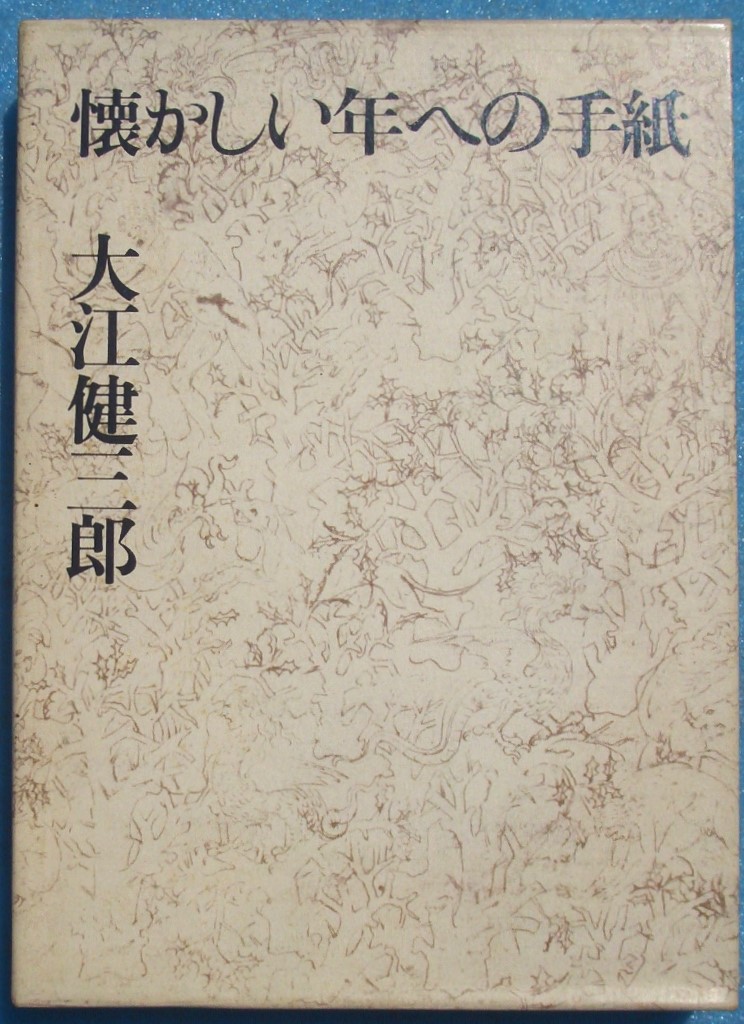 懐かしい年への手紙
大江健三郎